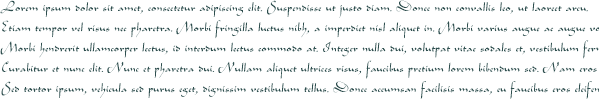 Lorem ipsum dolor sit amet, consectetur adipiscing elit. Suspendisse ut justo diam. Donec non convallis leo, ut laoreet arcu.
Etiam tempor vel risus nec pharetra. Morbi fringilla luctus nibh, a imperdiet nisl aliquet in. Morbi varius augue ac augue vo
Morbi hendrerit ullamcorper lectus, id interdum lectus commodo at. Integer nulla dui, volutpat vitae sodales et, vestibulum fern
Curabitur et nunc elit. Nunc et pharetra dui. Nullam aliquet ultrices risus, faucibus pretium lorem bibendum sed. Nam eros
Sed tortor ipsum, vehicula sed purus eget, dignissim vestibulum tellus. Donec accumsan facilisis massa, eu faucibus eros eleifen